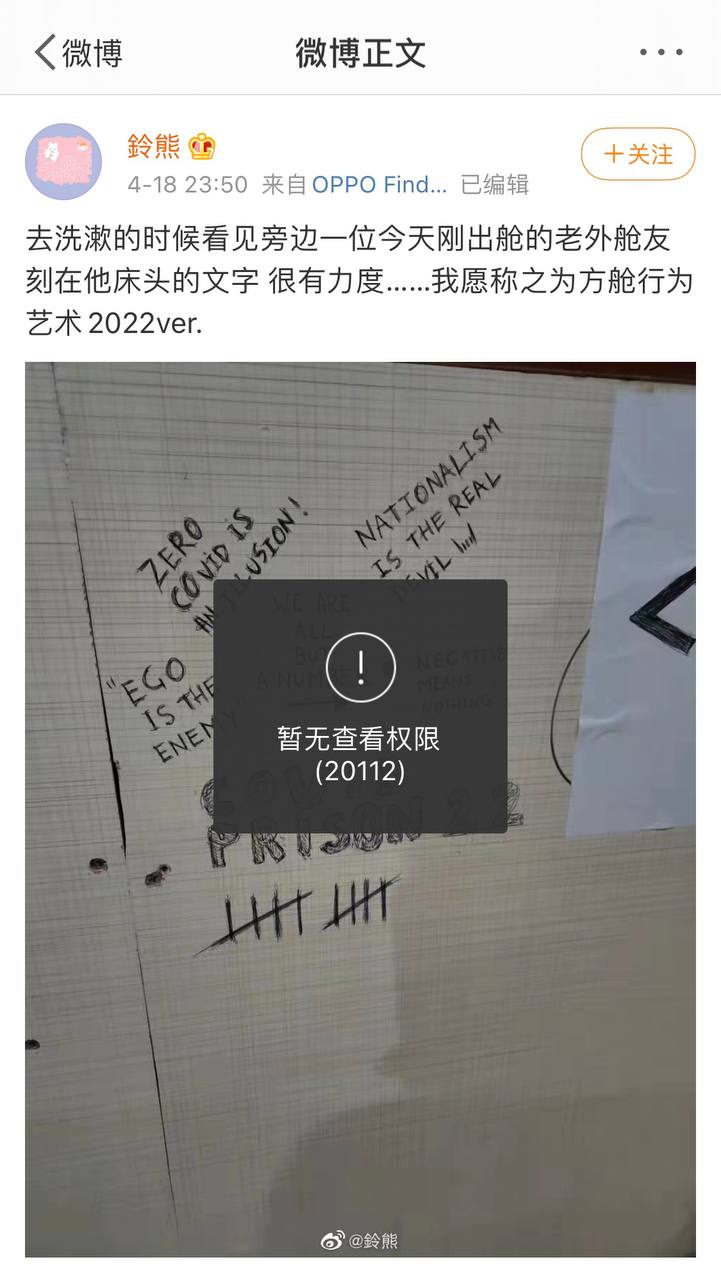 微博
微博正文
鈴熊
+关注
4-18 23:50 来自 OPPO Find... 已编辑
去洗漱的时候看见旁边一位今天刚出舱的老外舱友
刻在他床头的文字 很有力度……我愿称之为方舱行为
艺术2022ver.
ZERO
COVID IS
AN ILLUSION!
NATIONALISM
IS THE REAL
DEVIL
WE ARE
ALL
BUT
A NUMBER
NEGATIVE
MEANS
NOTHING
"EGO
IS THE
ENEMY"
暂无查看权限
(20112)
PRISON 22
@鈴熊